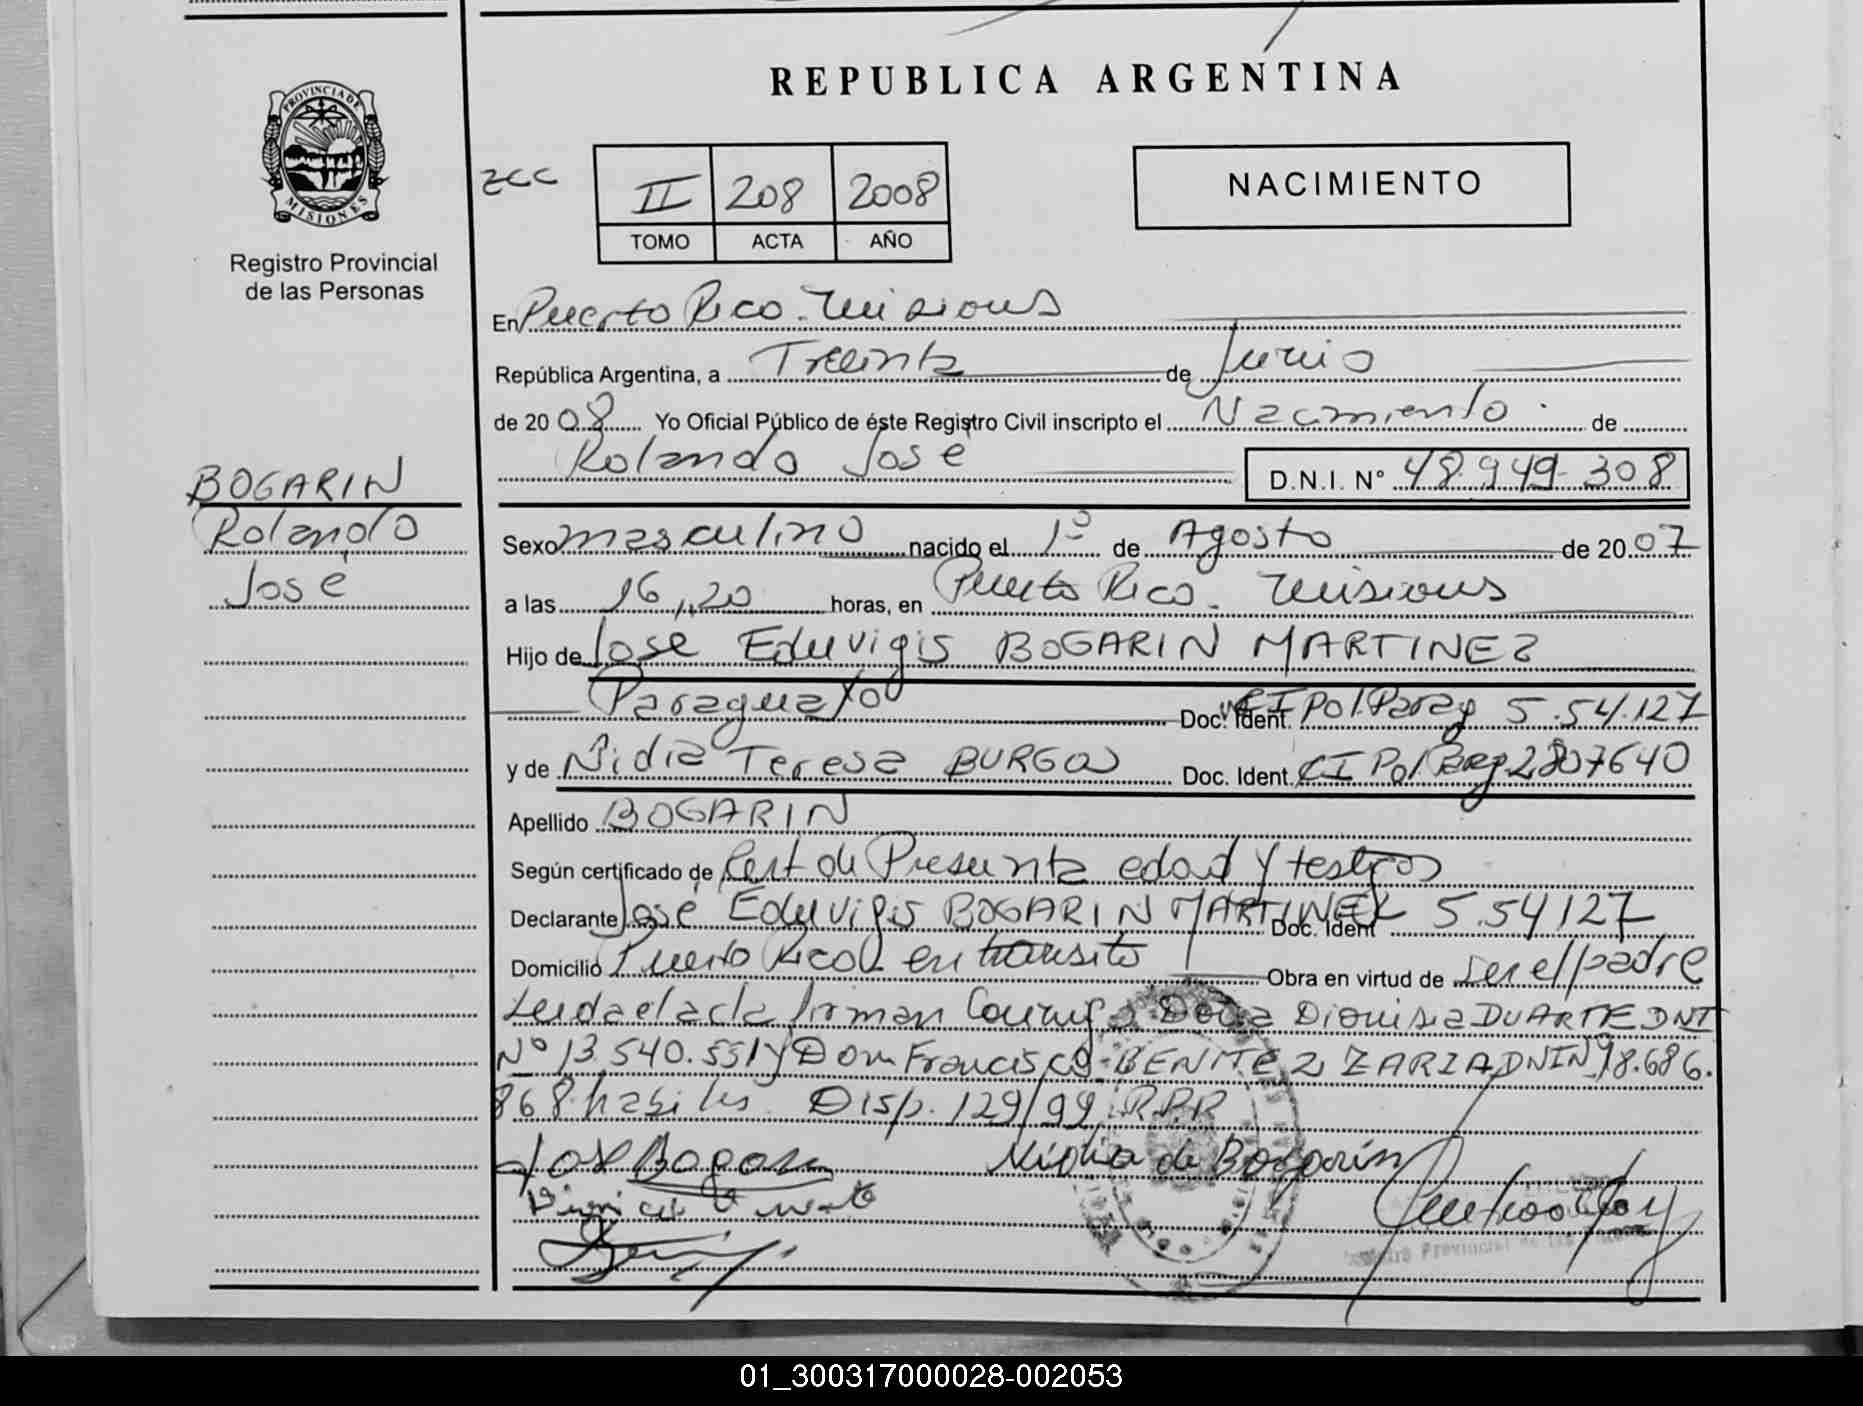 REPUBLICA ARGENTINA
PROVINCIA DE
MISIONES
Registro Provincial
de las Personas
zcc
II 208 2008
TOMO ACTA AÑO
NACIMIENTO
En Puerto Rico. Misiones
República Argentina, a Treinta de Junio
de 20 08 Yo Oficial Público de éste Registro Civil inscripto el Nacimiento de
Rolando José D.N.I. Nº 48.949.308
BOGARIN
Rolando
José
Sexo masculino nacido el 1º de Agosto de 20 07
a las 16,,20 horas, en Puerto Rico. Misiones
Hijo de José Eduvigis BOGARIN MARTINEZ
Paraguayo Doc. Ident. CI Pol.Parag 5.54.127
y de Nidia Teresa BURGOS Doc. Ident. CI Pol Parg 2807640
Apellido BOGARIN
Según certificado de Cert de Presunta edad y testigos
Declarante José Eduvigis BOGARIN MARTINEZ Doc. Ident 5.54127
Domicilio Puerto Rico en transito Obra en virtud de ser el padre
Leida el acta firman Conmigo Doña Dionisia DUARTE DNI
Nº 13.540.551 y Don Francisco BENITEZ ZARZA DNI Nº 18.686.
868 habiles. Disp. 129/99 R.P.P
José Bogarin Nidia de Bogarín
Registro Provincial de las
01_300317000028-002053